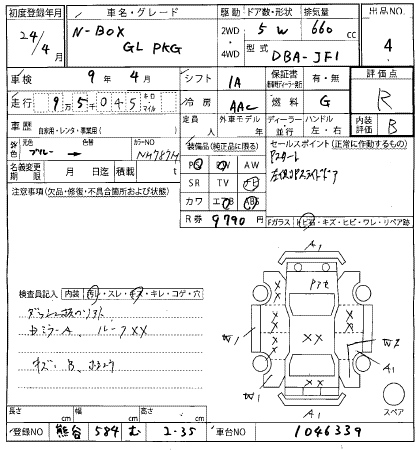 初度登録年月 車名・グレード 駆動 ドア数・形状 排気量 出品NO
24/4 N-BOX 2WD 5 W 660 cc 4
G L PKG 4WD 型式 DBA-JF1
車検 9年 4月 シフト IA 保証書 有・無 評価点
走行 95,045 キロ マイル 冷房 AAC 燃料 G R
車歴 自家用・レンタ・事業用( ) 定員 人 外車モデル 年 ディーラー 並行 ハンドル 左・右 内装評価 B
外装色 元色 ブルー カラーNO NH787M 装備品(純正品に限る) セールスポイント(正常に作動するもの)
PS PW AW Pスタート
名義変更期限 月 日迄 積載 t SR TV ナビ 左側Pスライドドア
注意事項(欠品・修復・不具合箇所および状態) カワ エアB ABS
R券 9790 円 Fガラス トビ石・キズ・ヒビ・ワレ・リペア跡
A1
検査員記入 内装 汚れ・スレ・キズ・キレ・コゲ・穴
XX
W1 W2
A1
W1
A1
キズ、B、
スペア
長さ cm 幅 cm 高さ cm
登録NO 熊谷 584 む 2-35 車台NO 1046339